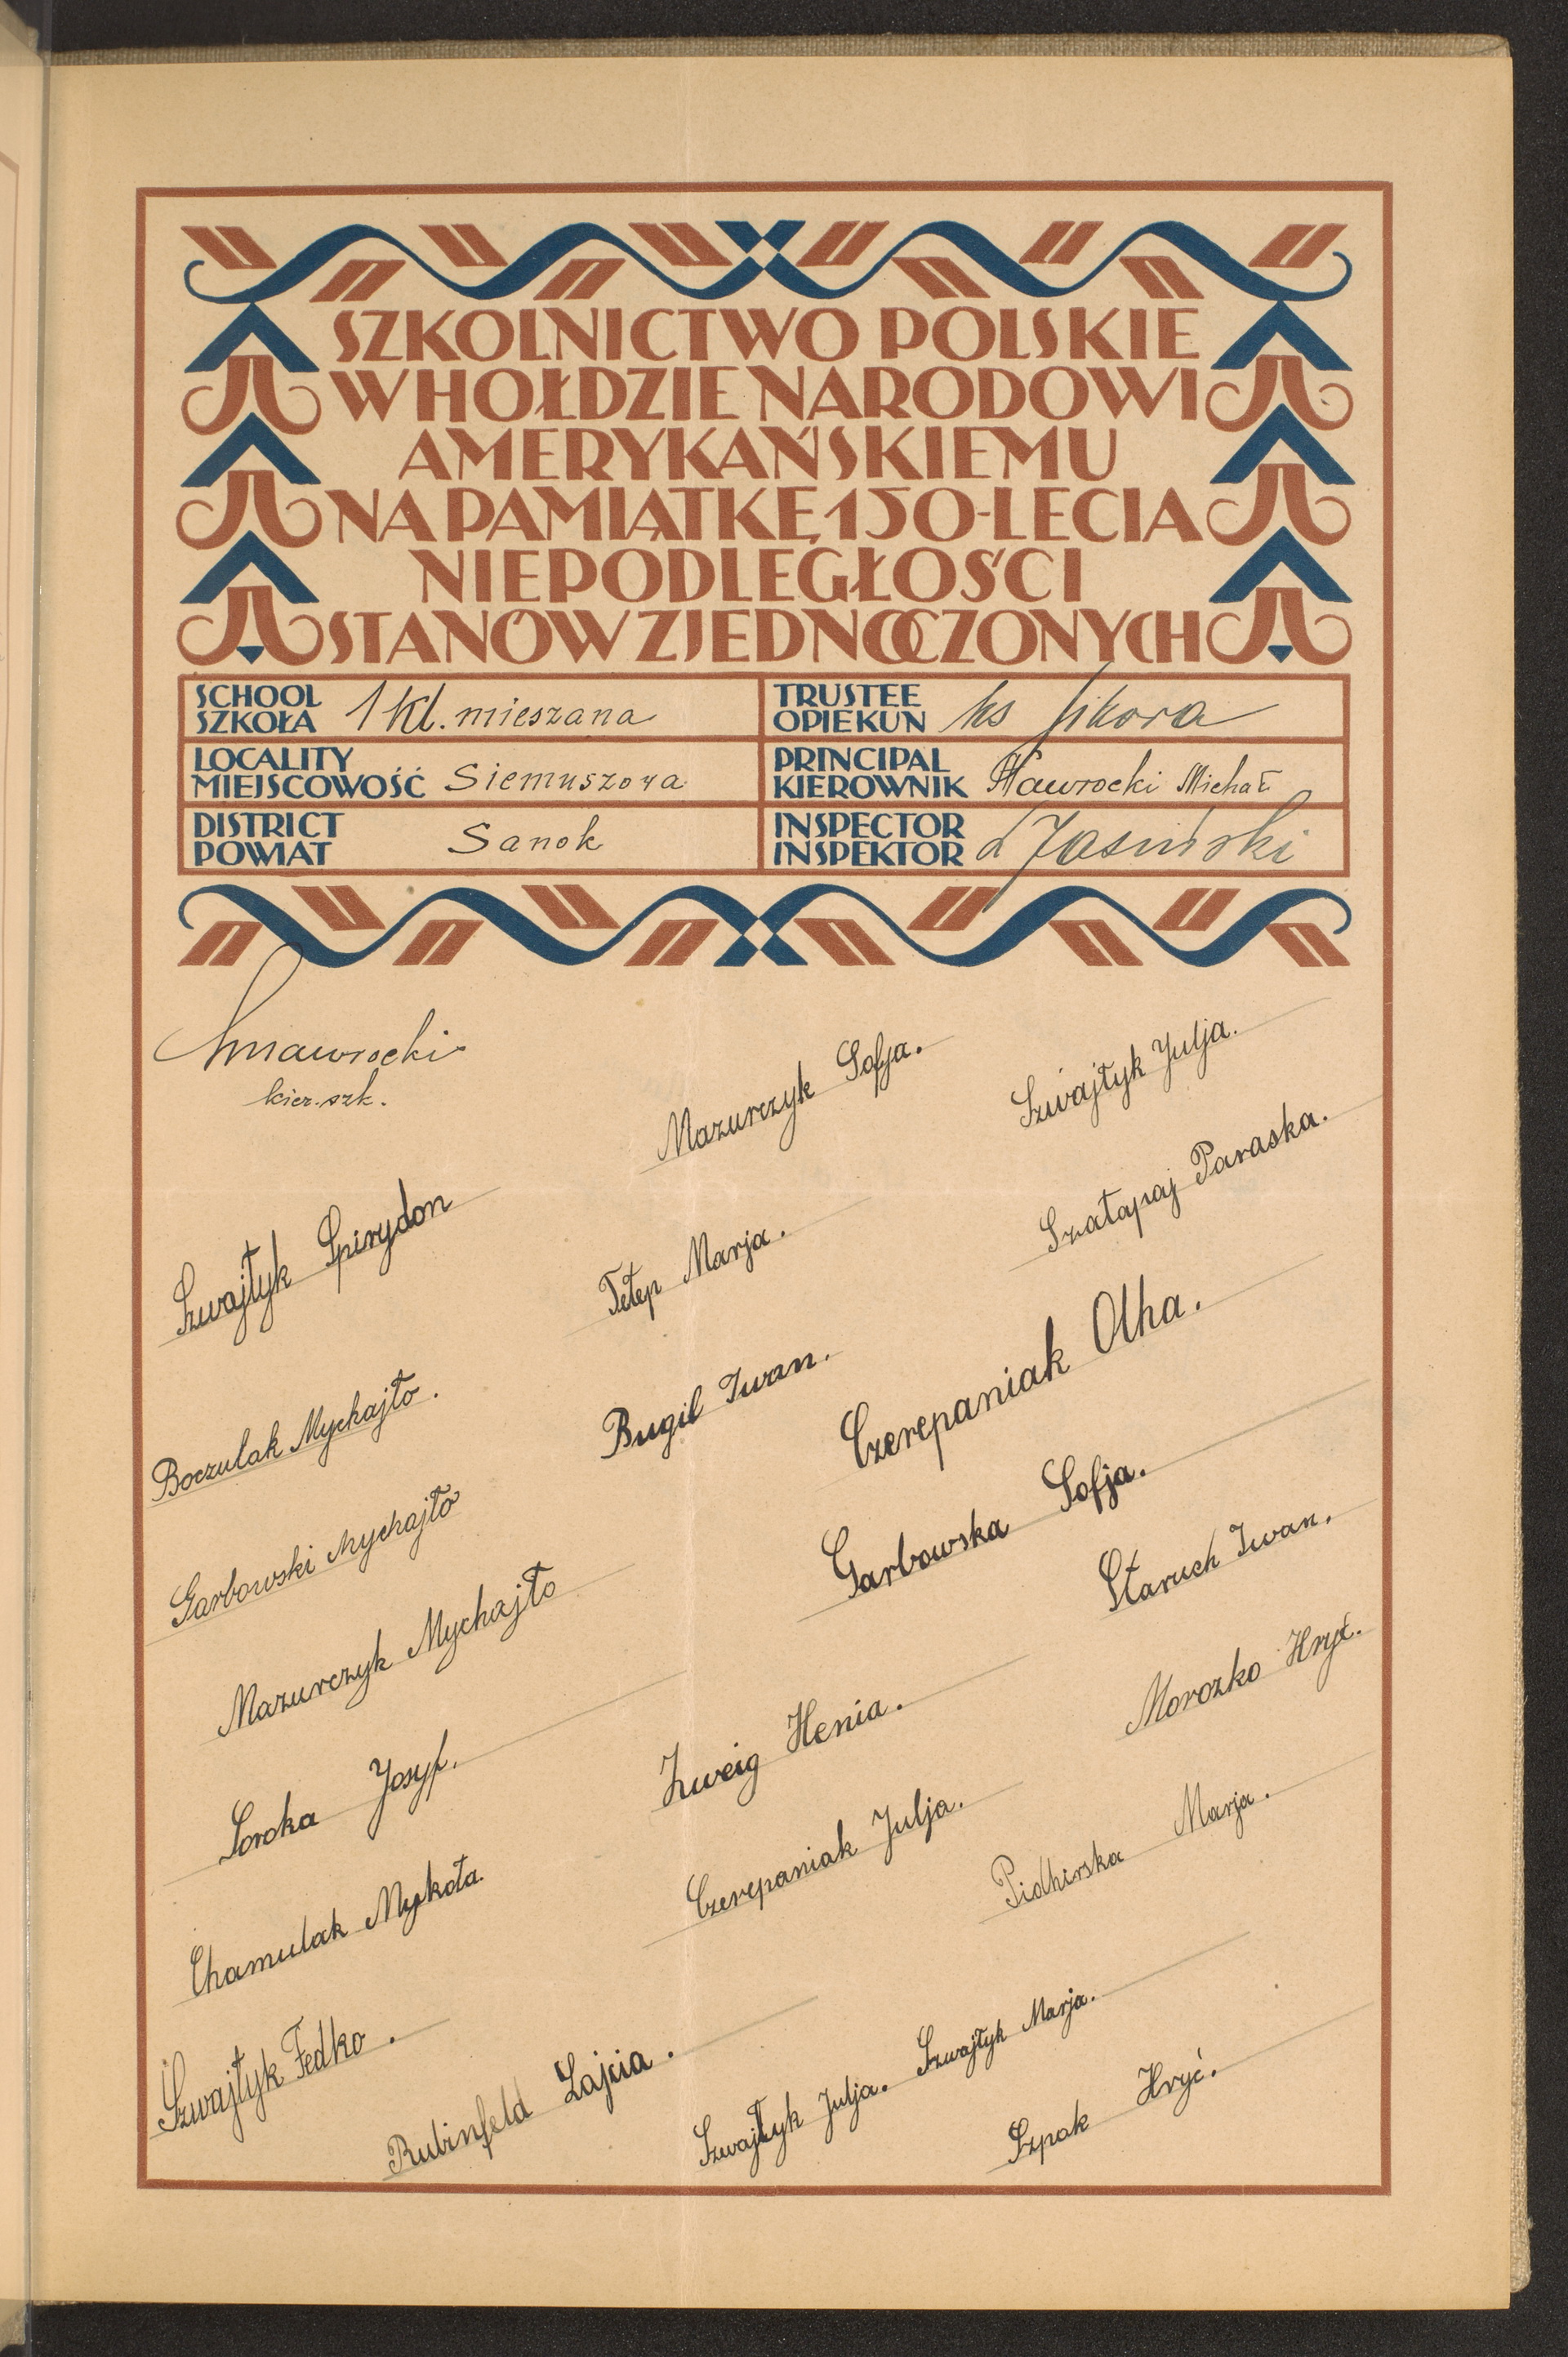 SZKOLNICTWO POLSKIE
W HOŁDZIE NARODOWI
AMERYKAŃSKIEMU
NA PAMIĄTKĘ 150-LECIA
NIEPODLEGŁOŚCI
STANÓW ZJEDNOCZONYCH
SCHOOL
SZKOŁA 1 Kl. mieszana
TRUSTEE
OPIEKUN ks Sikora
LOCALITY
MIEJSCOWOŚĆ Siemuszowa
PRINCIPAL
KIEROWNIK Nawrocki Michał
DISTRICT
POWIAT Sanok
INSPECTOR
INSPEKTOR Jasiński
kier. szk.
Mazurczyk Sofja.
Szwajłyk Julja.
Szwajłyk Spirydon
Tełep Marja.
Szałapaj Paraska.
Boczulak Mychajło.
Bugil Iwan.
Czerepaniak Olha.
Garbowski Mychajło
Garbowska Sofja.
Mazurczyk Mychajło
Staruch Iwan.
Soroka Josyf.
Zweig Henia.
Morozko Hryć.
Chamulak Mykoła.
Czerepaniak Julja.
Pidhirska Marja.
Szwajłyk Fedko.
Rubinfeld Łajcia.
Szwajłyk Julja.
Szwajłyk Marja.
Szpak Hryć.